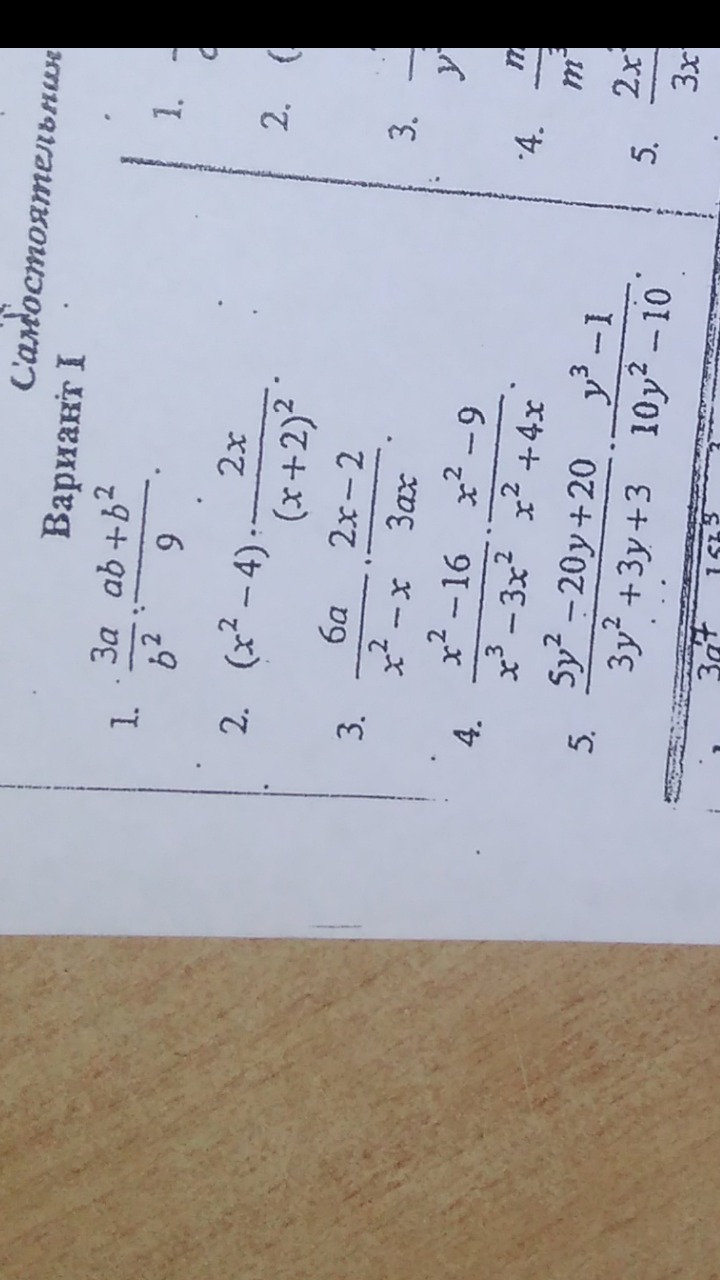 Самостоятельная
Вариант I
1. \frac{3a}{b^2} : \frac{ab+b^2}{9}.
2. (x^2-4) : \frac{2x}{(x+2)^2}.
3. \frac{6a}{x^2-x} : \frac{2x-2}{3ax}.
4. \frac{x^2-16}{x^3-3x^2} : \frac{x^2-9}{x^2+4x}.
5. \frac{5y^2-20y+20}{3y^2+3y+3} : \frac{y^3-1}{10y^2-10}.
1.
2. (
3.
4.
5. 2x
3x